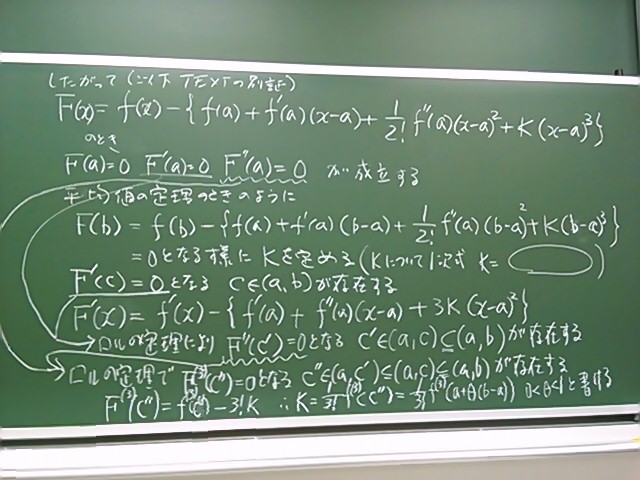 したがって (以下 TEXTの別証)
F(x) = f(x) - { f(a) + f'(a)(x-a) + 1/2! f''(a)(x-a)² + K(x-a)³ }
のとき
F(a)=0 F'(a)=0 F''(a)=0 が成立する
平均値の定理のときのように
F(b) = f(b) - { f(a) + f'(a)(b-a) + 1/2! f''(a)(b-a)² + K(b-a)³ }
= 0となる様に Kを定める (Kについて1次式 K= )
F'(c) = 0となる c∈(a,b)が存在する
F'(x) = f'(x) - { f'(a) + f''(a)(x-a) + 3K(x-a)² }
ロルの定理により F''(c')=0となる c'∈(a,c)⊆(a,b)が存在する
ロルの定理で F⁽³⁾(c'')=0となる c''∈(a,c')⊆(a,c)⊆(a,b)が存在する
F⁽³⁾(c'') = f⁽³⁾(c'') - 3!K ∴ K = 1/3! f⁽³⁾(c'') = 1/3! f⁽³⁾(a+θ(b-a)) 0<θ<1 と書ける